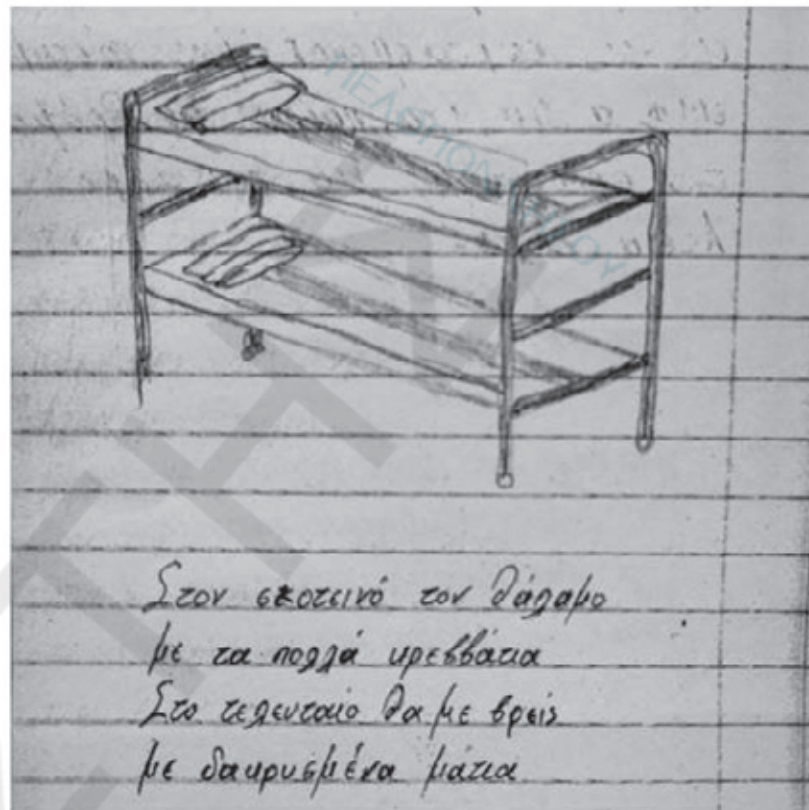 ΠΕΛΟΠΟΝΝΗΣΟΥ
Στον σκοτεινό τον θάλαμο
με τα πολλά κρεββάτια
Στο τελευταίο θα με βρεις
με δακρυσμένα μάτια